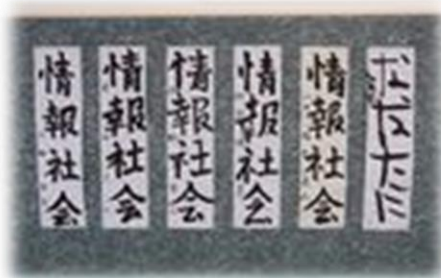 情報社会
情報社会
情報社会
情報社会
情報社会